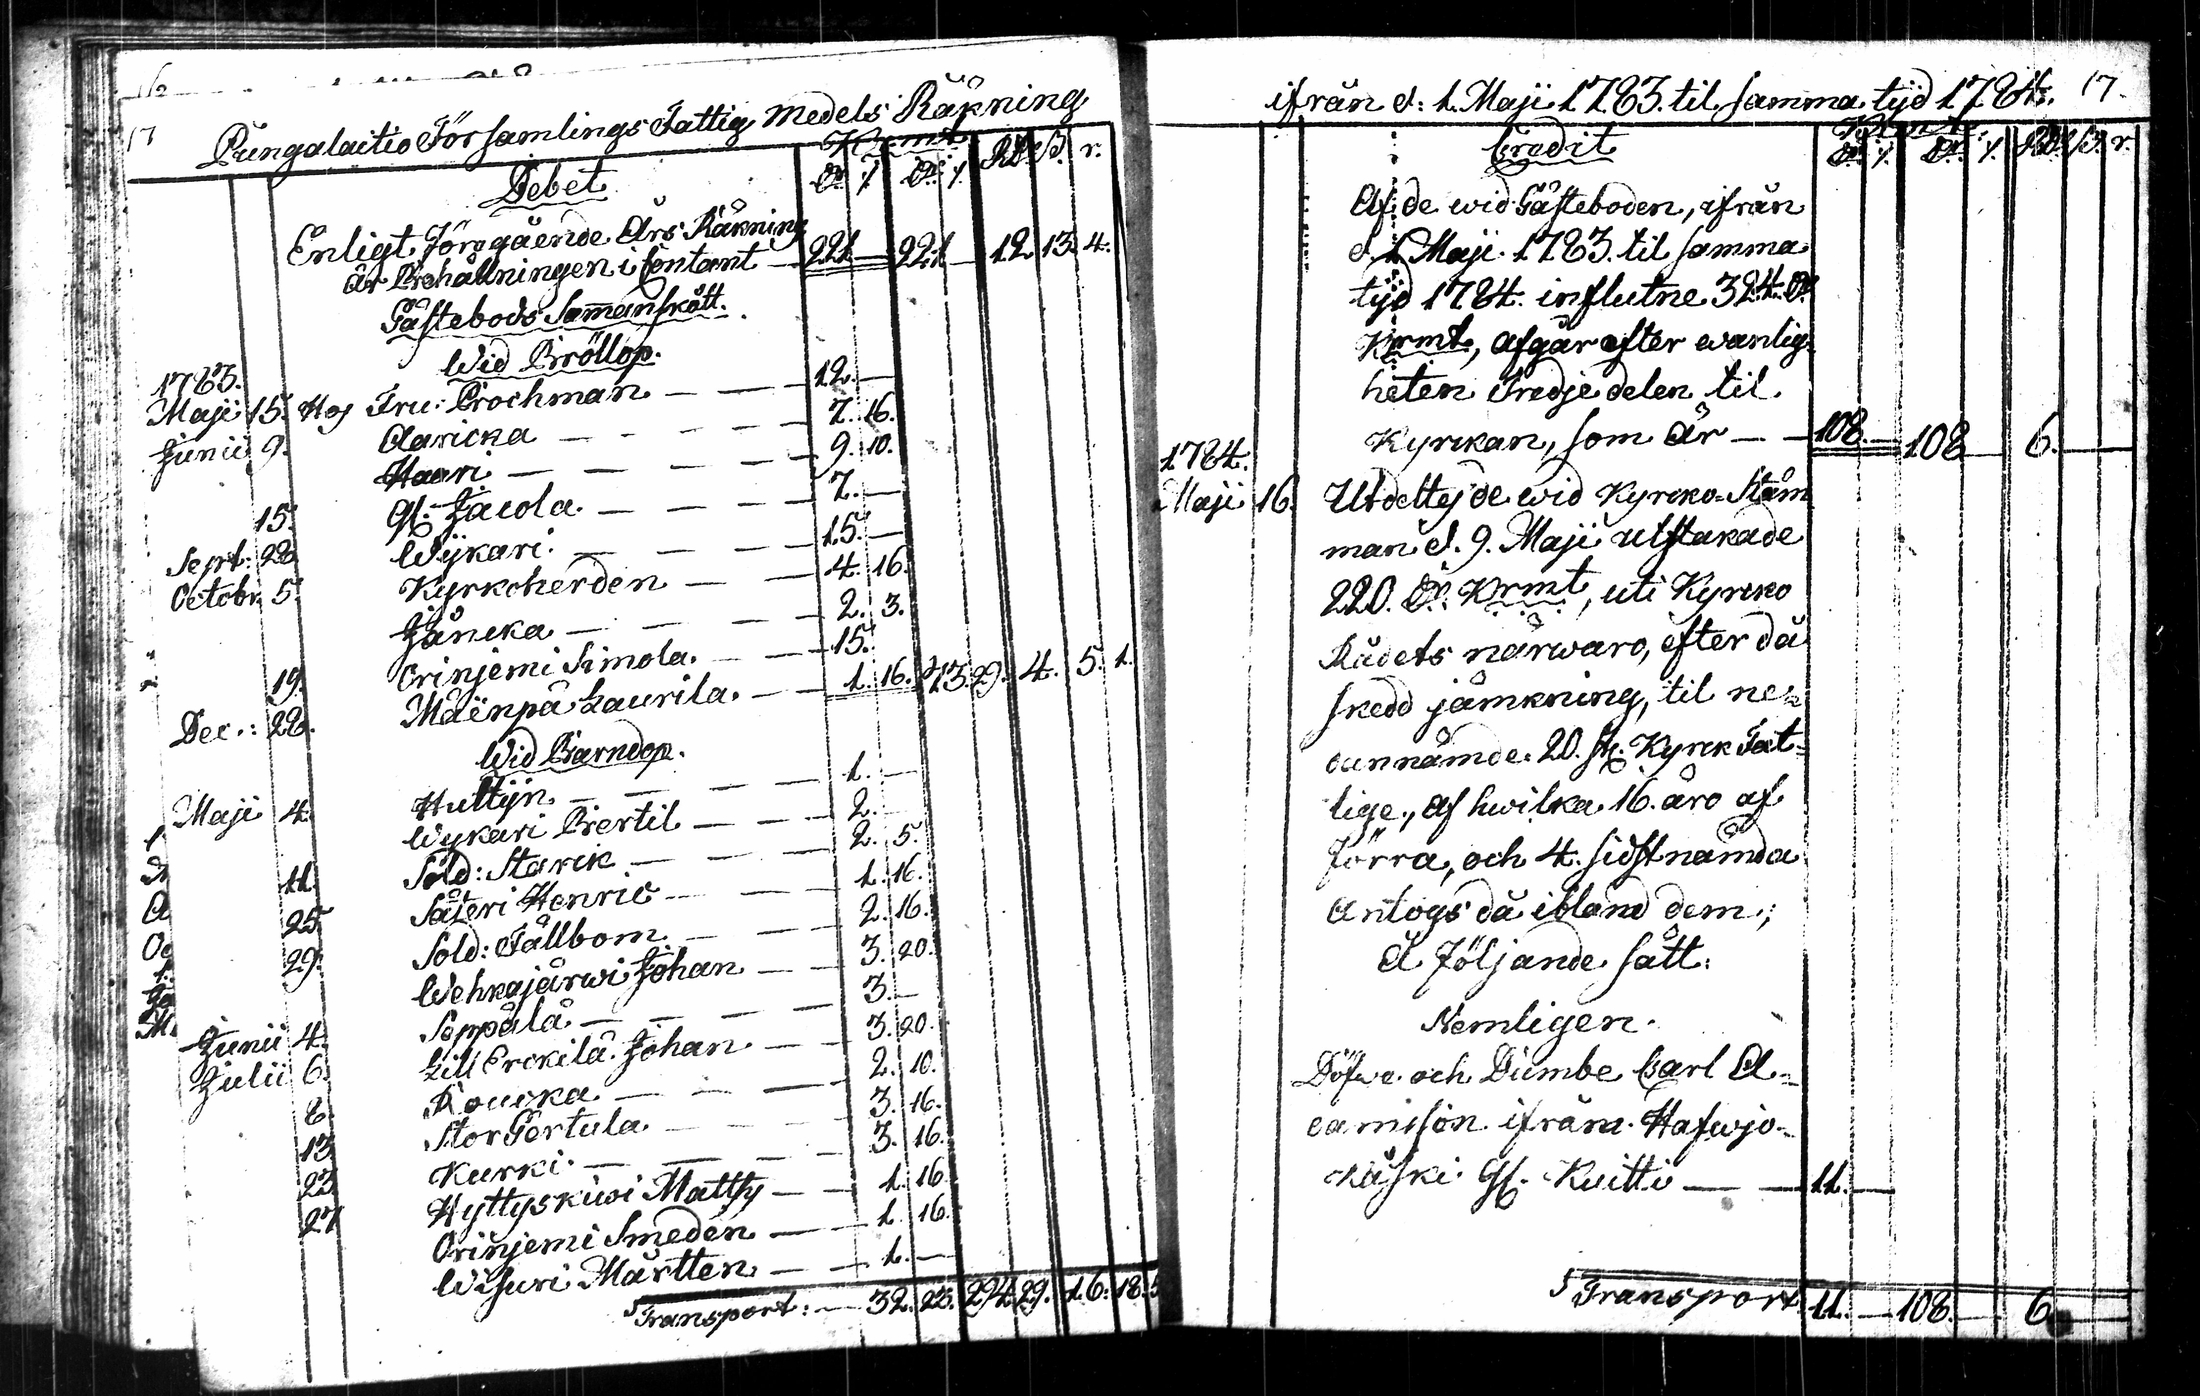 17 Pungalaitio Församlings Fattig medels Räkning
Debet
Krmt
Dr ⁒ Dr ⁒ Rd. ß. r.
Enligt föregående Års Räkning
är Behållningen i Contant — 221 — 221 — 12. 13. 4.
Gästebods Sammanskått.
Wid Bröllop.
1783.
Maji 15. Hos Fru: Brochman — — 12. —
Junii 9. Claricka — — — 7. 16.
Haari — — — — 9. 10.
15. Gl. Jacola — — — 7. —
Sept: 28 Wijkari — — — 15. —
Octobr. 5. Kyrkoherden — — 4. 16.
Jåncka — — — 2. 3.
19. Orinjemi Simola. — — 15.
Dec.: 28. Mäenpä Laurila. — — 1. 16. 73. 29. 4. 5. 1.
Wid Barndop.
Maji 4. Huttijn — — — 1. —
Wykari Bertil — — 2. —
11. Sold: Starck — — 2. 5.
25 Säteri Henric — — 1. 16.
29. Sold: Tällbom — — 2. 16.
Wehkajärwi Johan — — 3. 20.
Junii 4. Seppälä — — — 3. —
Julii 6. Lill Erckilä Johan — — 3. 20.
8. Roucka — — — 2. 10.
13 Stor Pertula — — — 3. 16.
23 Kurki — — — 3. 16.
27 Hyttyskiwi Matts — — 1. 16
Orinjemi Smeden — — 1. 16.
Wisuri Mårtten — — 1. —
Transport: — 32. 23. 294. 29. 16. 18. 5
ifrån d: 1. Maji 1783. til samma tijd 1784. 17.
Credit
Krmt
Dr ⁒ Dr ⁒ Rd. ß. r.
Af de wid Gästeboden, ifrån
d. 1 Maji 1783. til samma
tijd 1784. influtne 324. Dr
Krmt, afgår efter wanlig-
heten tredje delen til
Kyrckan, som är — — 108. — 108 — 6. —
1784.
Maji 16. Utdeltes de wid Kyrcko-Stäm
man d. 9. Maji utstakade
220. Dr Krmt, uti Kyrcko
Rådets närwaro, efter då
skedd jämkning, til ne-
dannämde 20. st. Kyrck Fat-
tige, af hwilka 16. äro af
förra, och 4. sidstnämda
antogs då ibland dem;
å följande sätt:
Nemligen.
Döfwe och Dumbe Carl A-
damsson ifrån Hafwjo-
käski Gl. Kuitti — — 11. —
Transport 11. — 108. — 6.